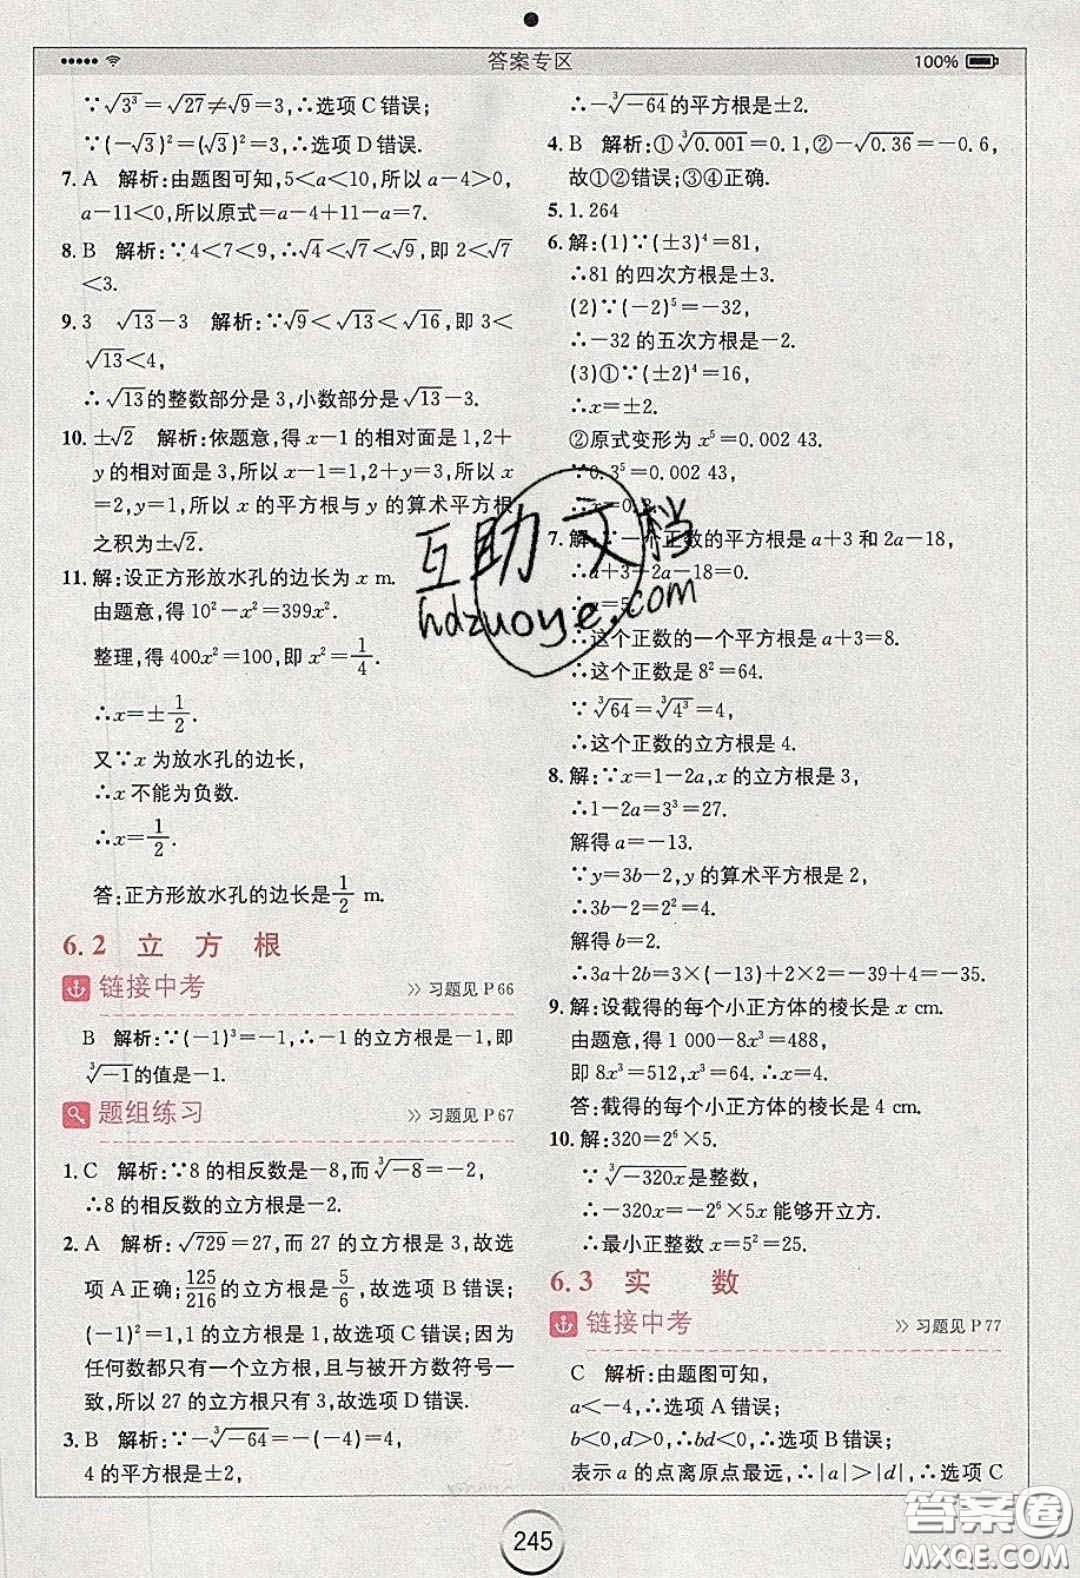 答案专区
100%
∵√3³=√27≠√9=3,∴选项C错误;
∵(-√3)²=(√3)²=3,∴选项D错误.
7. A 解析:由题图可知,5<a<10,所以a-4>0,
a-11<0,所以原式=a-4+11-a=7.
8. B 解析:∵4<7<9,∴√4<√7<√9,即2<√7
<3.
9. 3 √13-3 解析:∵√9<√13<√16,即3<
√13<4,
∴√13的整数部分是3,小数部分是√13-3.
10. ±√2 解析:依题意,得x-1的相对面是1,2+
y的相对面是3,所以x-1=1,2+y=3,所以x
=2,y=1,所以x的平方根与y的算术平方根
之积为±√2.
11. 解:设正方形放水孔的边长为x m.
由题意,得10²-x²=399x².
整理,得400x²=100,即x²=1/4.
∴x=±1/2.
又∵x为放水孔的边长,
∴x不能为负数.
∴x=1/2.
答:正方形放水孔的边长是1/2 m.
6.2 立方根
链接中考
>> 习题见P66
B 解析:∵(-1)³=-1,∴-1的立方根是-1,即
³√-1的值是-1.
题组练习
>> 习题见P67
1. C 解析:∵8的相反数是-8,而³√-8=-2,
∴8的相反数的立方根是-2.
2. A 解析:√729=27,而27的立方根是3,故选
项A正确;125/216的立方根是5/6,故选项B错误;
(-1)²=1,1的立方根是1,故选项C错误;因为
任何数都只有一个立方根,且与被开方数符号一
致,所以27的立方根只有3,故选项D错误.
3. B 解析:∵-³√-64=-(-4)=4,
4的平方根是±2,
∴-³√-64的平方根是±2.
4. B 解析:①³√0.001=0.1,②-√0.36=-0.6,
故①②错误;③④正确.
5. 1.264
6. 解:(1)∵(±3)⁴=81,
∴81的四次方根是±3.
(2)∵(-2)⁵=-32,
∴-32的五次方根是-2.
(3)①∵(±2)⁴=16,
∴x=±2.
②原式变形为x⁵=0.002 43.
∵0.3⁵=0.002 43,
∴x=0.3.
7. 解:∵一个正数的平方根是a+3和2a-18,
∴a+3+2a-18=0.
∴a=5
∴这个正数的一个平方根是a+3=8.
∴这个正数是8²=64.
∵³√64=³√4³=4,
∴这个正数的立方根是4.
8. 解:∵x=1-2a,x的立方根是3,
∴1-2a=3³=27.
解得a=-13.
∵y=3b-2,y的算术平方根是2,
∴3b-2=2²=4.
解得b=2.
∴3a+2b=3×(-13)+2×2=-39+4=-35.
9. 解:设截得的每个小正方体的棱长是x cm.
由题意,得1 000-8x³=488,
即8x³=512,x³=64.∴x=4.
答:截得的每个小正方体的棱长是4 cm.
10. 解:320=2⁶×5.
∵³√-320x是整数,
∴-320x=-2⁶×5x能够开立方.
∴最小正整数x=5²=25.
6.3 实数
链接中考
>> 习题见P77
C 解析:由题图可知,
a<-4,∴选项A错误;
b<0,d>0,∴bd<0,∴选项B错误;
表示a的点离原点最远,∴|a|>|d|,∴选项C
245
互助文档
hdzuoye.com
答案圈
MXQE.COM